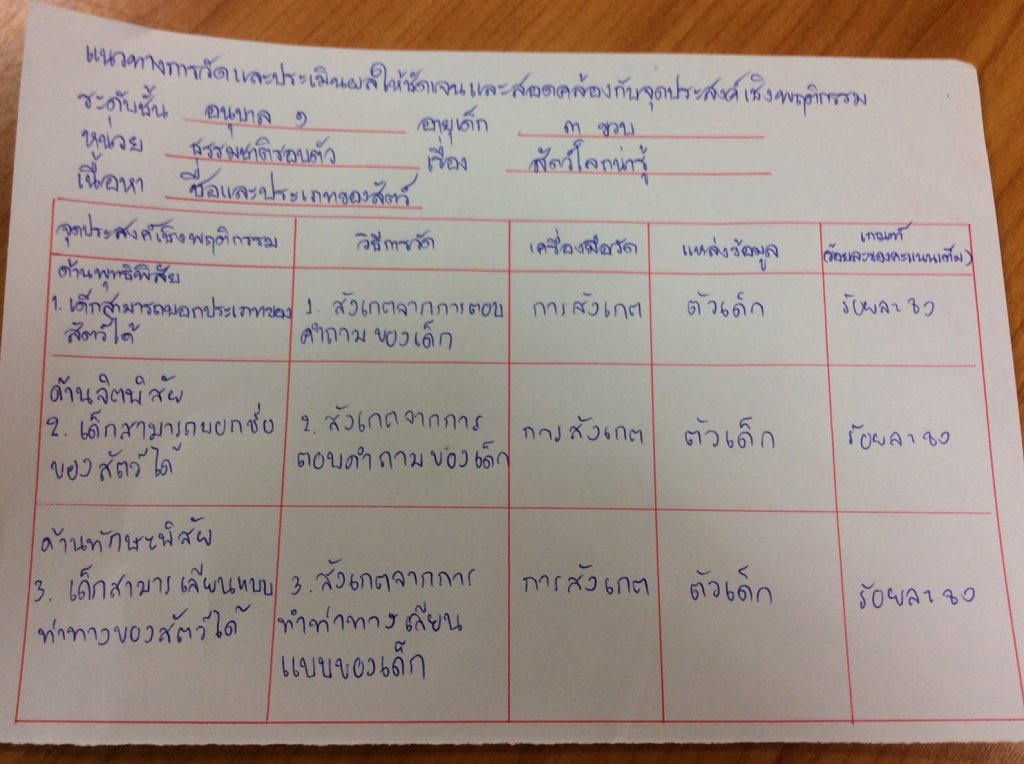 แนวทางการวัดและประเมินผลให้ชัดเจนและสอดคล้องกับจุดประสงค์เชิงพฤติกรรม
ระดับชั้น อนุบาล ๑ อายุเด็ก ๓ ขวบ
หน่วย ธรรมชาติรอบตัว เรื่อง สัตว์โลกน่ารู้
เนื้อหา ชื่อและประเภทของสัตว์
จุดประสงค์เชิงพฤติกรรม วิธีการวัด เครื่องมือวัด แหล่งข้อมูล เกณฑ์
(ร้อยละของคะแนนเต็ม)
ด้านพุทธิพิสัย
1. เด็กสามารถบอกประเภทของ 1. สังเกตจากการตอบ การสังเกต ตัวเด็ก ร้อยละ ๖๐
สัตว์ได้ คำถามของเด็ก
ด้านจิตพิสัย
2. เด็กสามารถบอกชื่อ 2. สังเกตจากการ การสังเกต ตัวเด็ก ร้อยละ ๖๐
ของสัตว์ได้ ตอบคำถามของเด็ก
ด้านทักษะพิสัย
3. เด็กสามาร เลียนแบบ 3. สังเกตจากการ การสังเกต ตัวเด็ก ร้อยละ ๖๐
ท่าทางของสัตว์ได้ ทำท่าทางเลียน
แบบของเด็ก